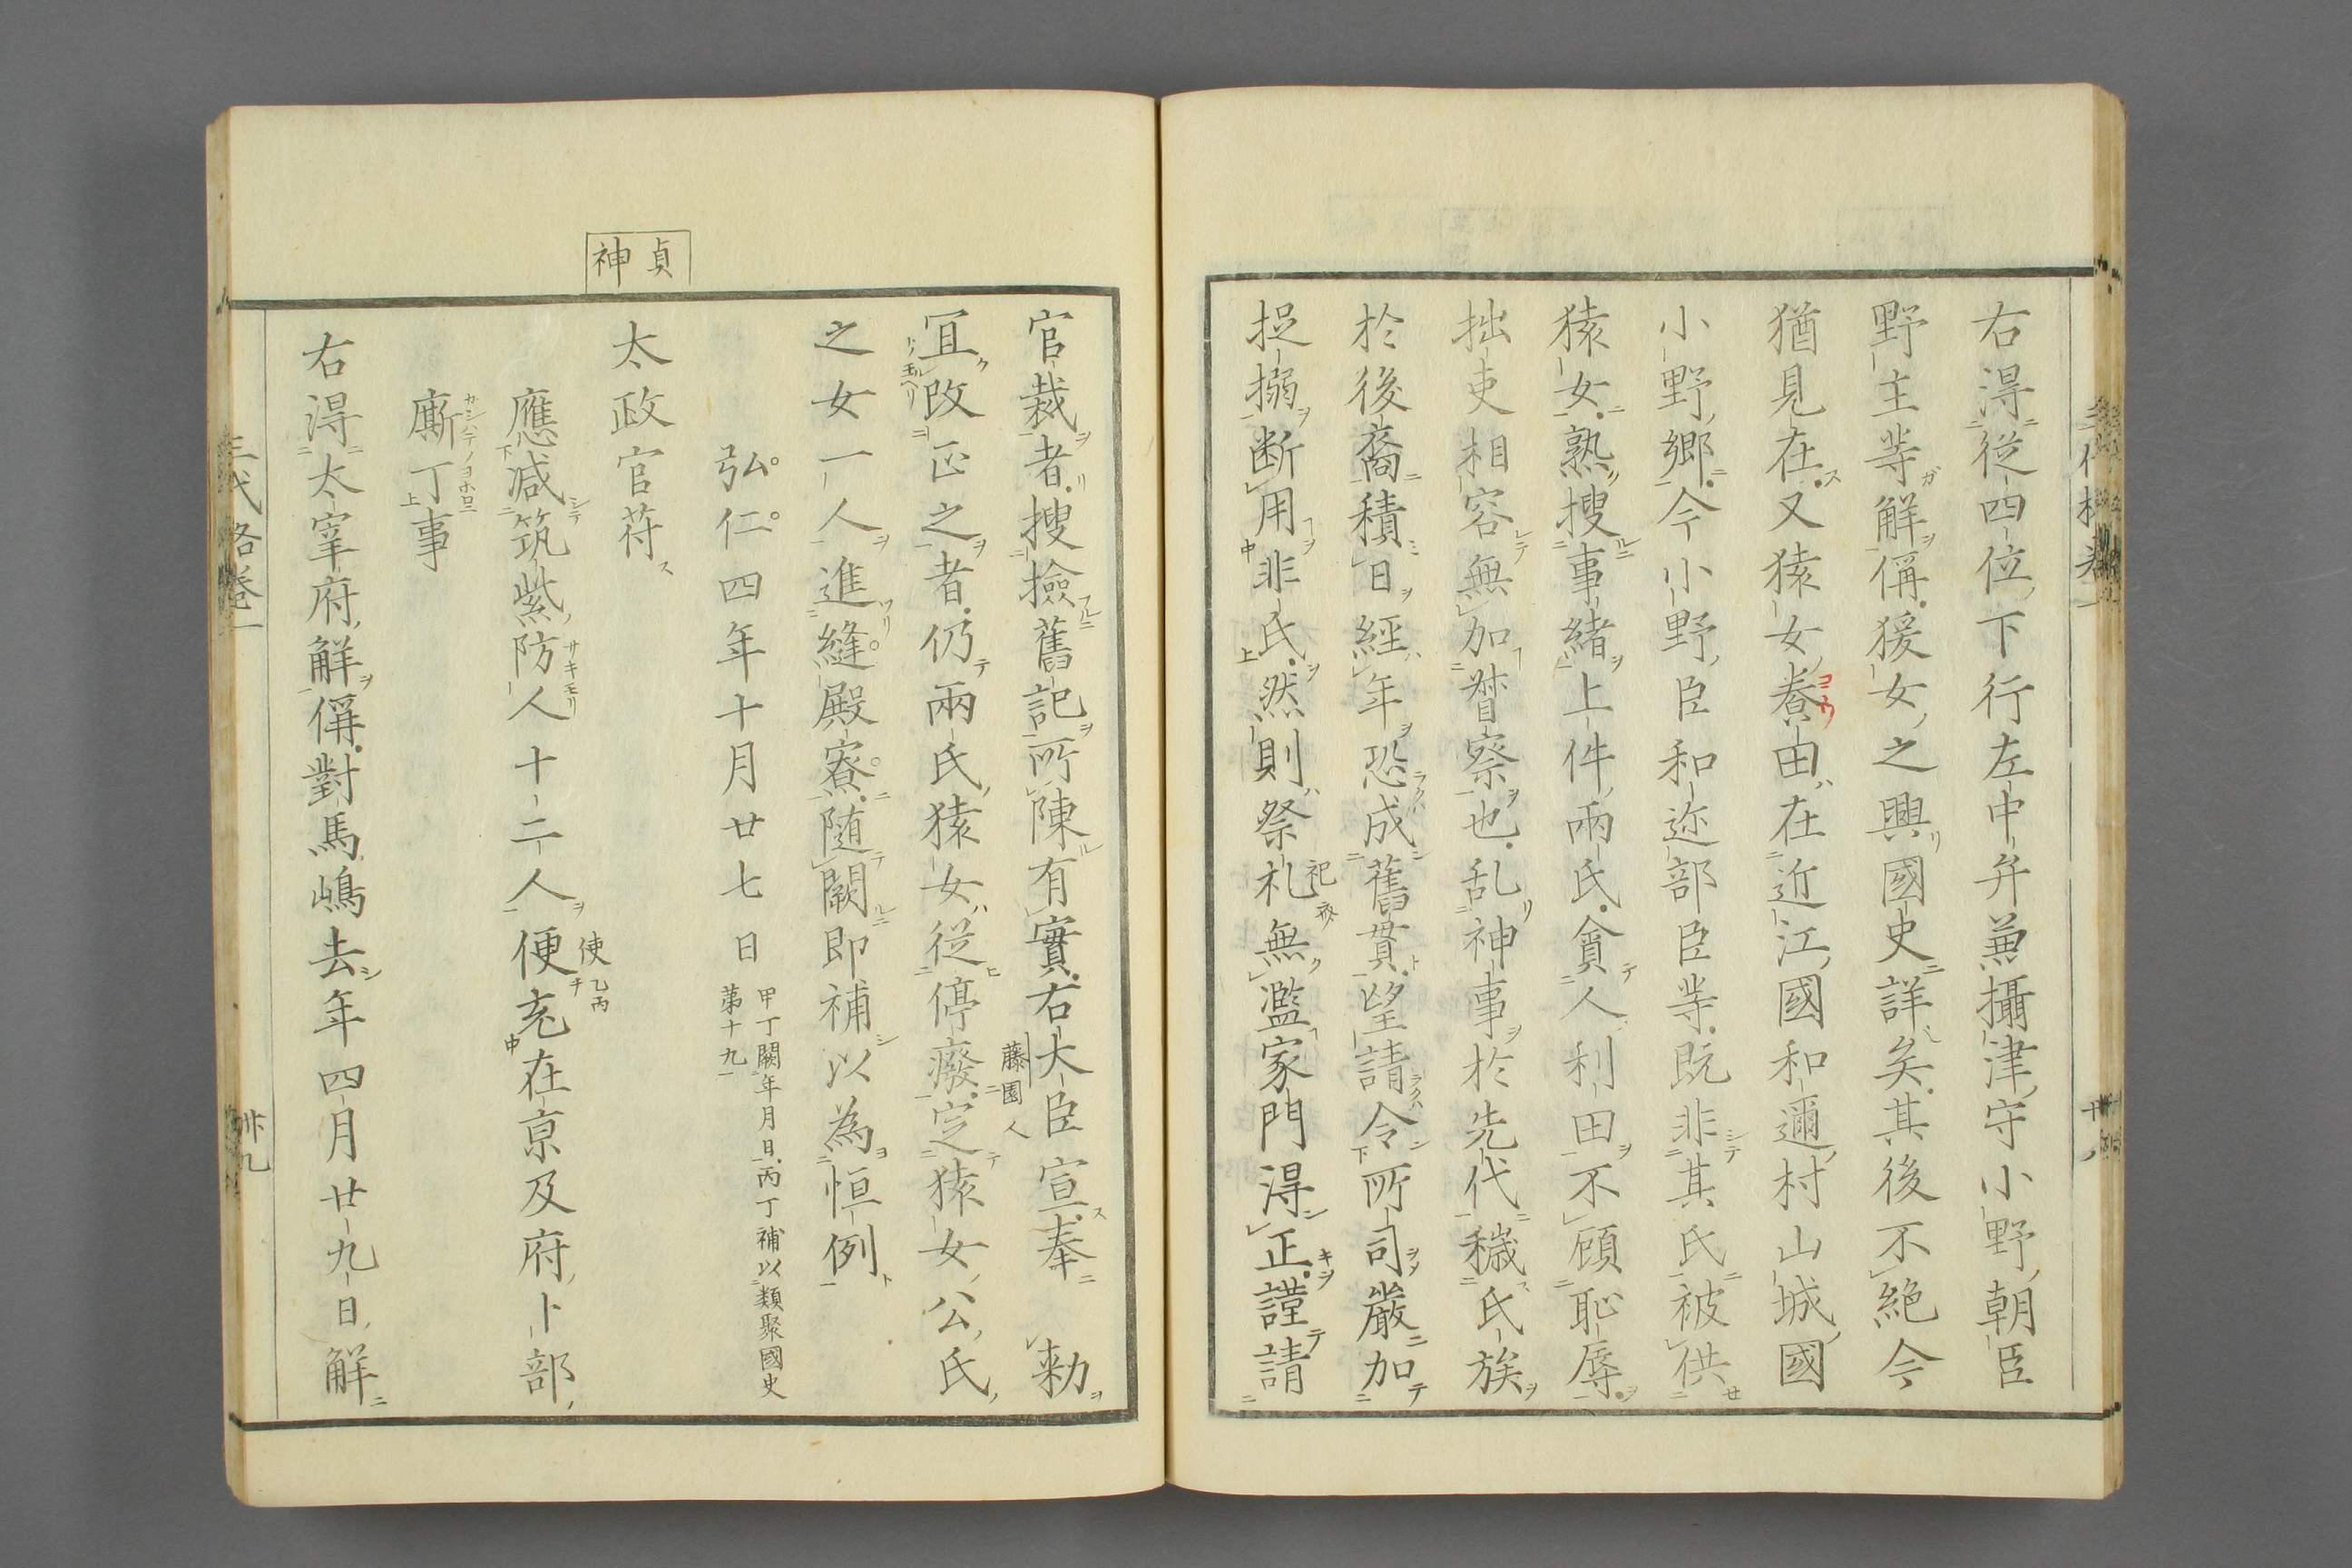 右得従四位下行左中弁兼攝津守小野朝臣
野主等解偁猨女之興國史詳矣其後不絶今
猶見在又猿女養田在近江國和邇村山城國
小野郷今小野臣和迩部臣等既非其氏被供
猿女熟搜事緒上件兩氏貪人利田不顧恥辱
拙吏相容無加督察也乱神事於先代穢氏族
於後裔積日經年恐成舊貫望請令所司嚴加
捉搦断用非氏然則祭礼無濫家門得正謹請
祀
官裁者搜撿舊記所陳有實右大臣宣奉 勅
藤園人
冝改正之者仍兩氏猿女従停癈定猿女公氏
之女一人進縫殿寮随闕即補以為恒例
弘仁四年十月廿七日
甲丁闕年月日丙丁補以類聚國史
第十九
貞
神
太政官苻
應减筑紫防人十二人便充在京及府卜部
サキモリ
使乙丙
廝丁事
右得太宰府解偁對馬嶋去年四月廿九日解
三代格巻一